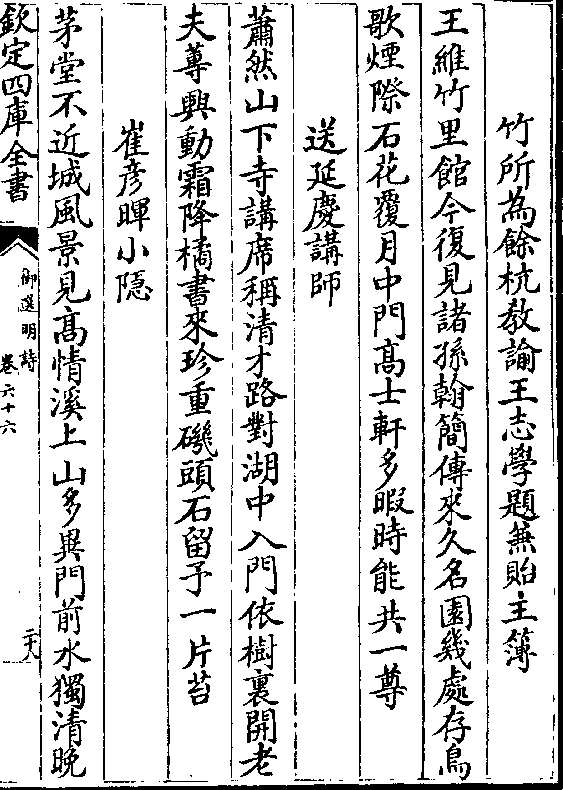 竹所為餘杭教諭王志學題兼貽主簿
王維竹里館今復見諸孫翰簡傳來久名園幾處存鳥
歌煙際石花覆月中門髙士軒多暇時能共一尊
送延慶講師
蕭然山下寺講席稱清才路對湖中入門依樹裏開老
夫蓴興動霜降橘書來珍重磯頭石留予一片苔
崔彦暉小隠
茅堂不近城風景見髙情溪上山多異門前水獨清晩
欽定四庫全書
御選明詩
卷六十六
二十八